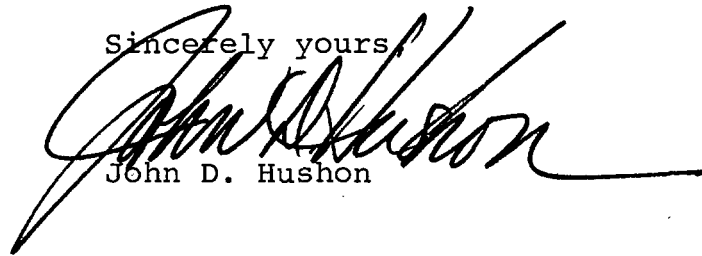 Sincerely yours,
John D. Hushon
John D. Hushon